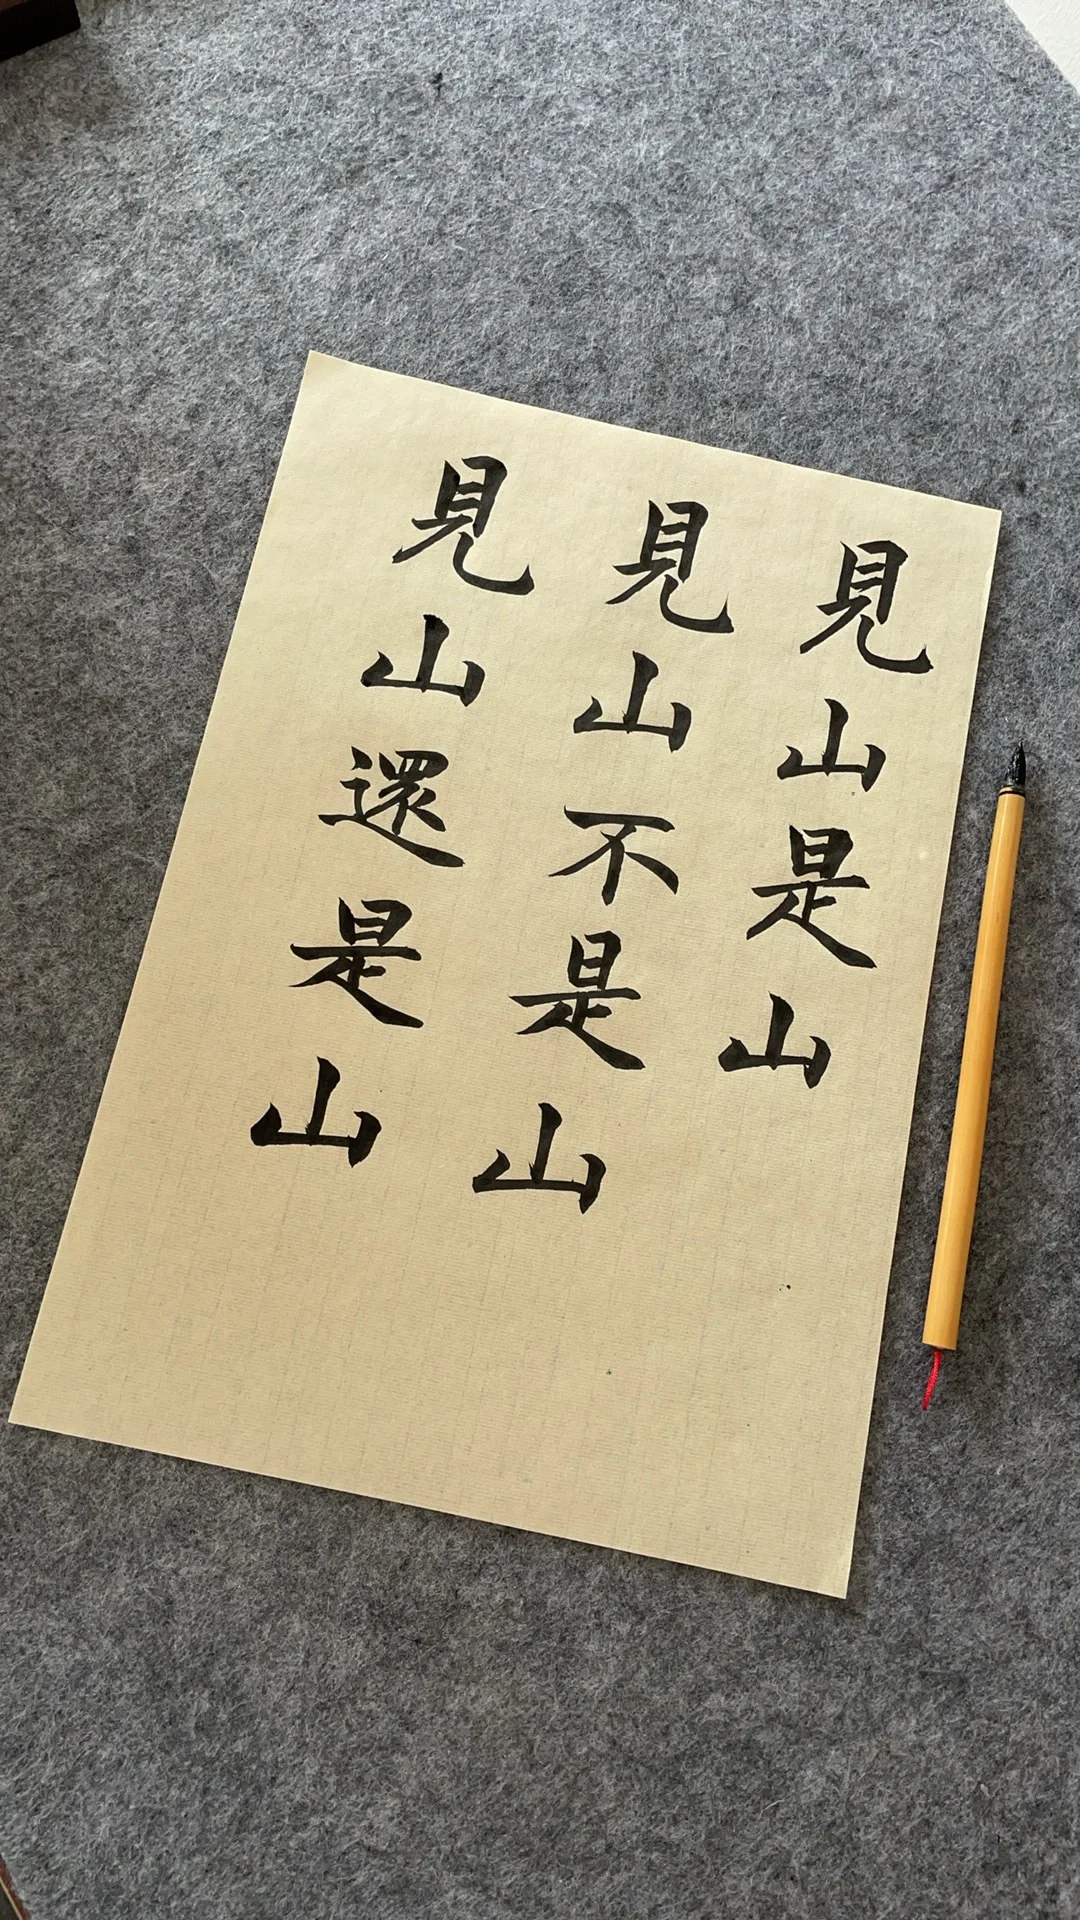 見山是山
見山不是山
見山還是山